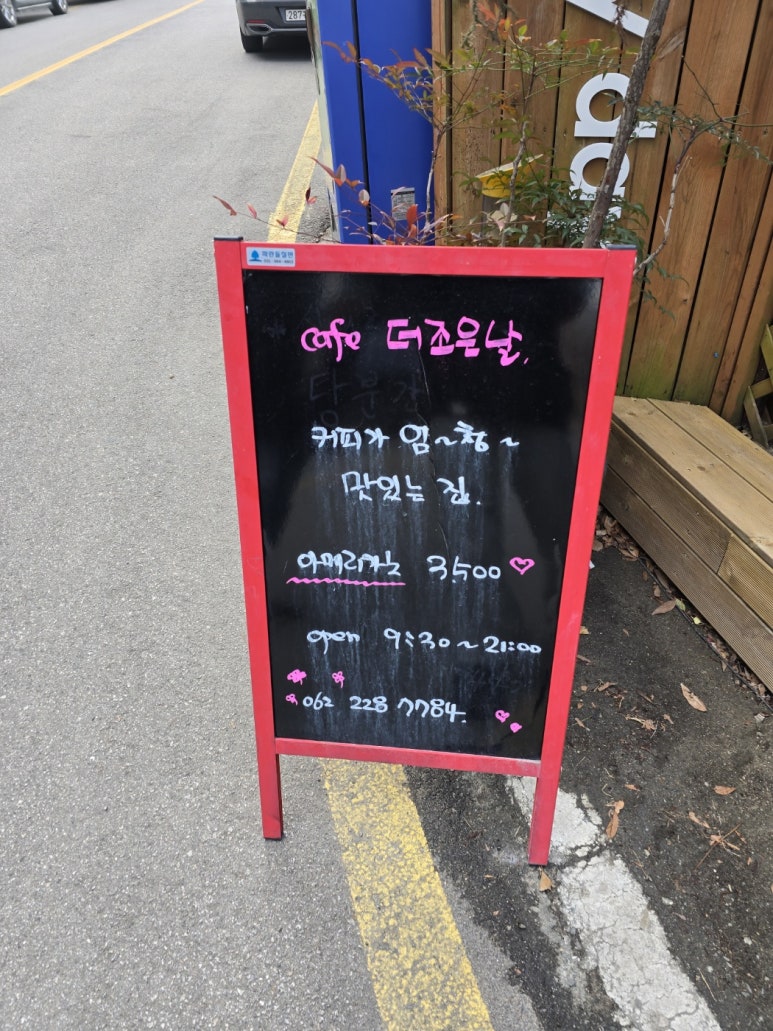 2871
cafe 더조은날.
커피가 엄~청~
맛있는 집.
아메리카노 3,500
open 9:30~21:00
062 228 7784.